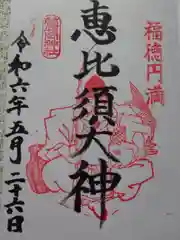 福徳円満
恵比須大神
令和六年五月二十六日